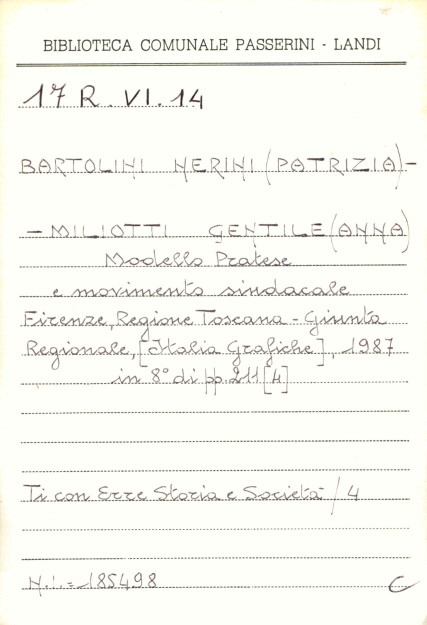 BIBLIOTECA COMUNALE PASSERINI - LANDI
17 R. VI. 14
BARTOLINI NERINI (PATRIZIA) -
- MILIOTTI GENTILE (ANNA)
Modello Pratese
e movimento sindacale
Firenze, Regione Toscana - Giunta
Regionale, [Italia Grafiche], 1987
in 8° di pp. 211 [4]
Ti con Erre Storia e Società / 4
N.i. = 185498
C